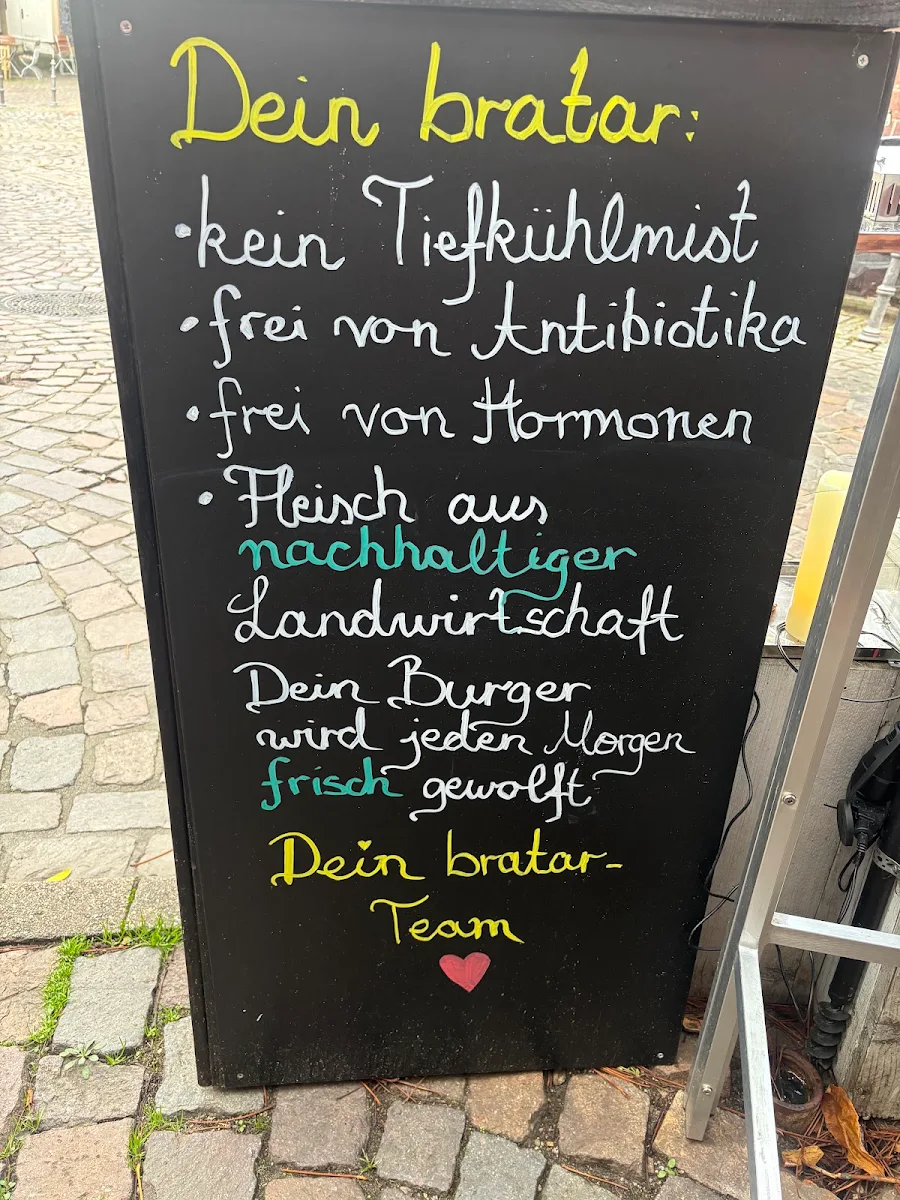 Dein bratar:
• kein Tiefkühlmist
• frei von Antibiotika
• frei von Hormonen
• Fleisch aus
nachhaltiger
Landwirtschaft
Dein Burger
wird jeden Morgen
frisch gewolft
Dein bratar-
Team